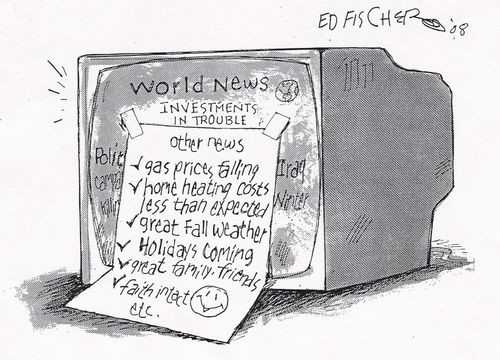 ED FISCHER '08
World News
INVESTMENTS
IN TROUBLE
other news
✓ gas prices falling
✓ home heating costs
less than expected
✓ great Fall weather
✓ Holidays coming
✓ great family, friends
✓ faith intact
etc.
Polit
campai
killin
Iraq
Winter